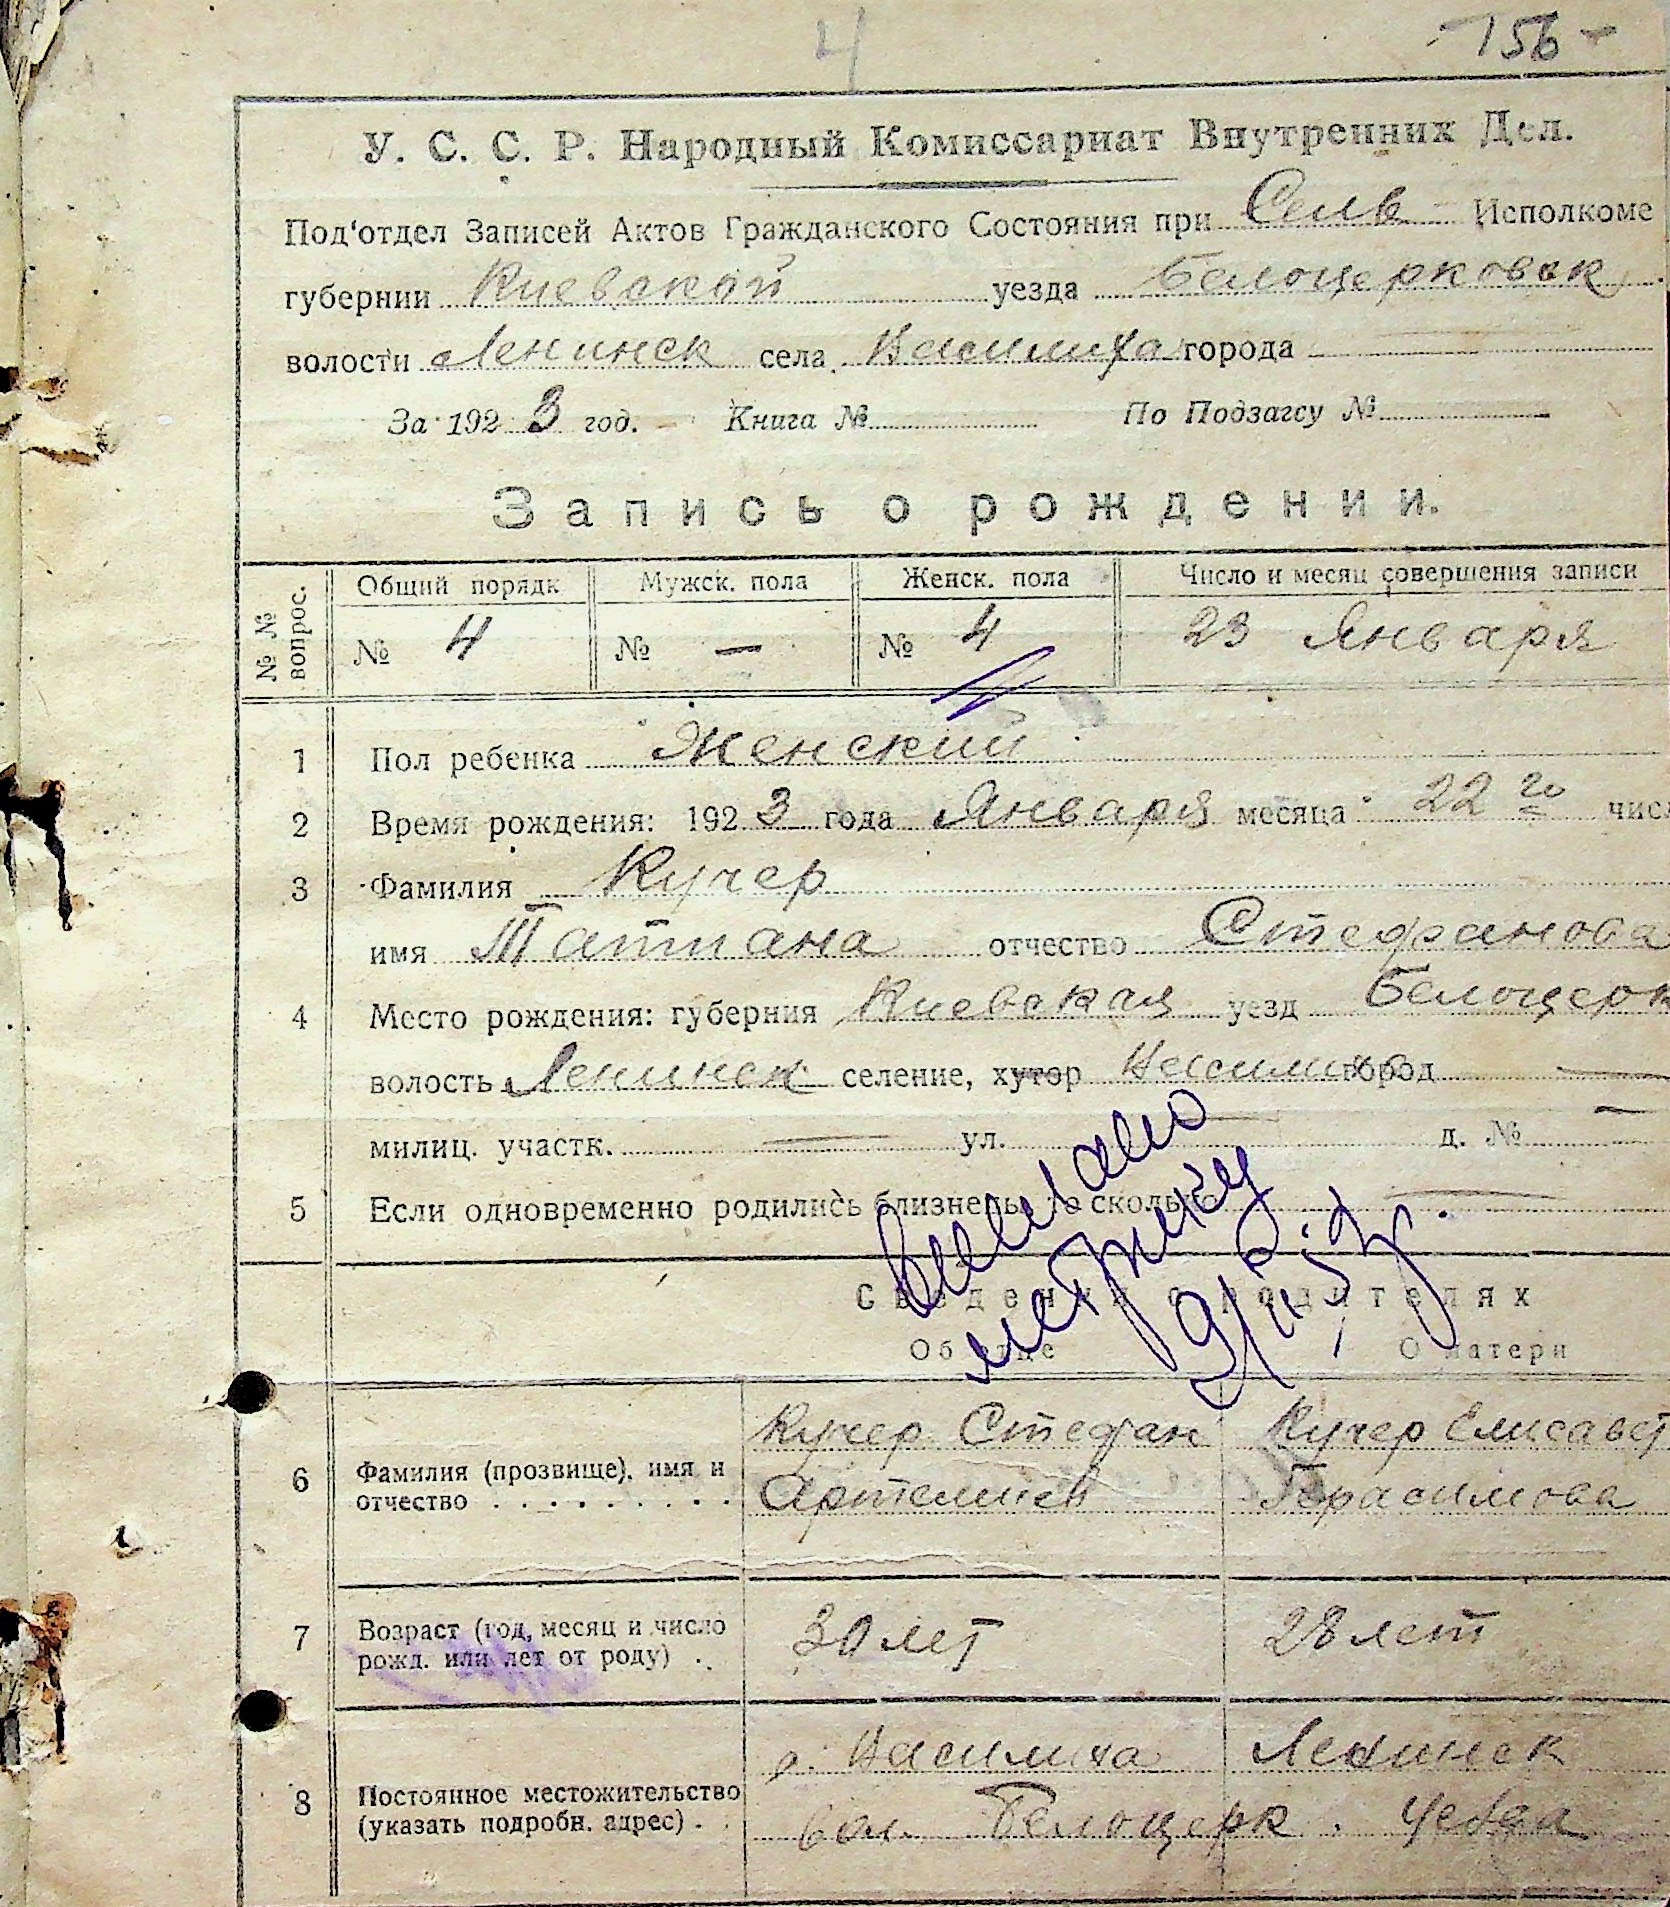 4
- 156 -
У. С. С. Р. Народный Комиссариат Внутренних Дел.
Под‘отдел Записей Актов Гражданского Состояния при Сель Исполкоме
губернии Киевской уезда Белоцерковск
волости Ленинск села Василиха города —
За 1923 год. Книга № По Подзагсу №
Запись о рождении.
№ № вопрос. Общий порядк Мужск. пола Женск. пола Число и месяц совершения записи
№ 4 № — № 4 23 Января
1 Пол ребенка Женский
2 Время рождения: 1923 года Января месяца 22 го числ
3 Фамилия Кучер
имя Татиана отчество Стефанова
4 Место рождения: губерния Киевская уезд Белоцерк
волость Ленинск селение, хутор Василиха город —
милиц. участк. — ул. д. № —
5 Если одновременно родились близнецы, то сколько —
метрику
Сведения о родителях
Об отце О матери
6 Фамилия (прозвище), имя и отчество Кучер Стефан Артемиев Кучер Елисавет Герасимова
7 Возраст (год, месяц и число рожд. или лет от роду) 30 лет 28 лет
8 Постоянное местожительство (указать подробн. адрес) с. Василиха Ленинск
вол. Белоцерк. уезда